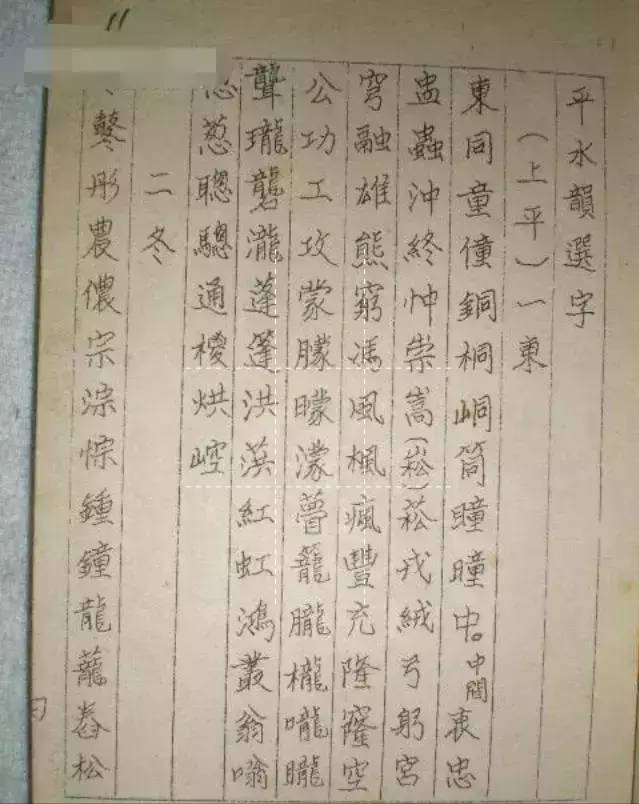 11
平水韻選字
(上平)一東
東同童僮銅桐峒筒瞳曈中。中間衷忠
盅蟲沖終忡崇嵩(崧)菘戎絨弓躬宮
穹融雄熊窮馮風楓瘋豐充隆窿空
公功工攻蒙朦曚濛瞢籠朧櫳嚨矓
聾瓏礱瀧蓬篷洪渱紅虹鴻叢翁嗡
蔥聰驄通椶烘崆
二冬
鼕彤農儂宗淙悰鍾鐘龍蘢舂松